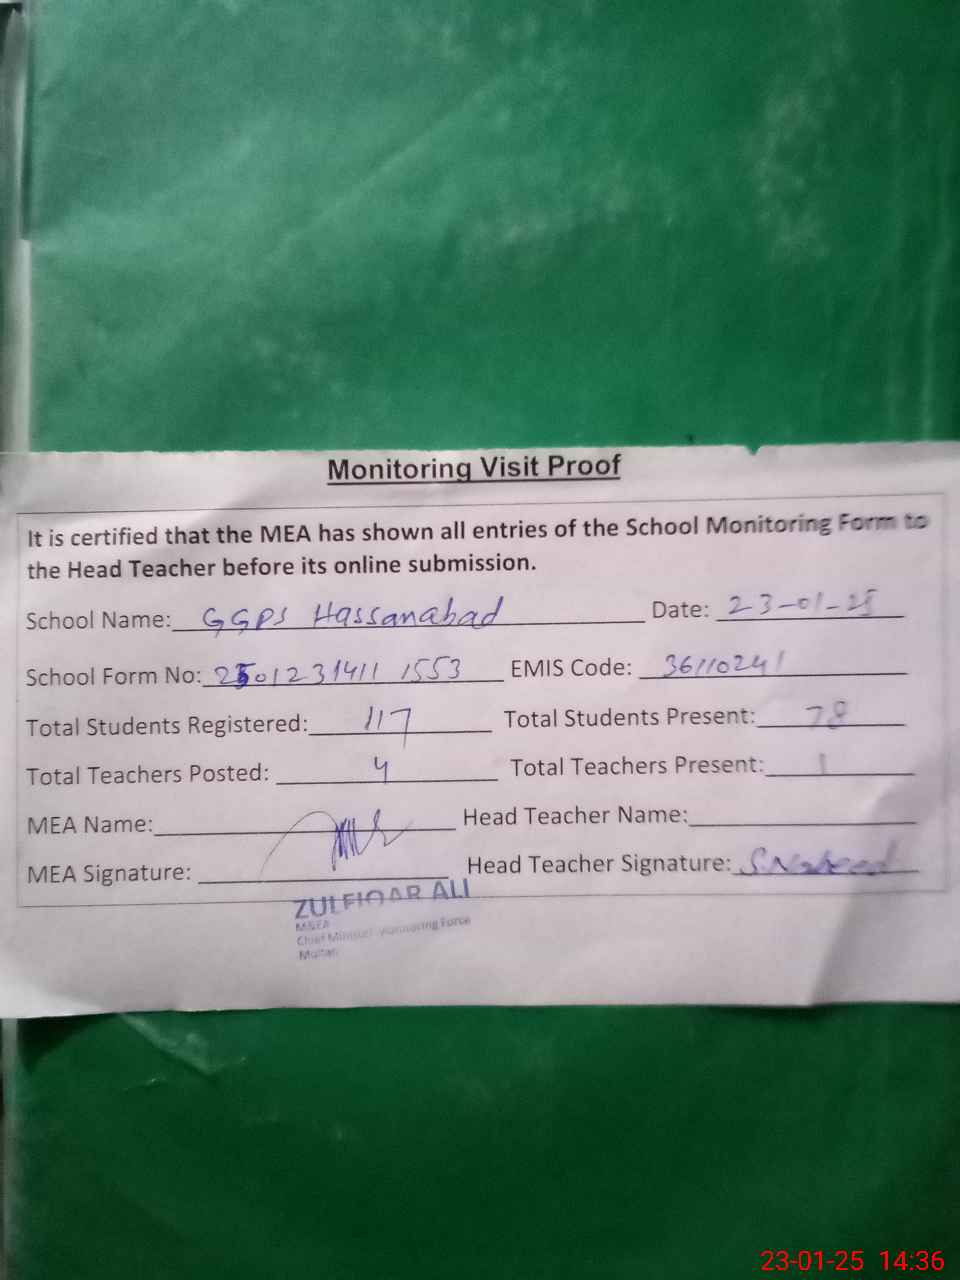 Monitoring Visit Proof
It is certified that the MEA has shown all entries of the School Monitoring Form to
the Head Teacher before its online submission.
School Name: GGPS Hassanabad Date: 23-01-25
School Form No: 250123141 1 1553 EMIS Code: 36110241
Total Students Registered: 117 Total Students Present: 78
Total Teachers Posted: 4 Total Teachers Present: 1
MEA Name: Head Teacher Name:
MEA Signature: Head Teacher Signature: S.Naheed
ZULFIQAR ALI
M&EA
Chief Minister Monitoring Force
Multan
23-01-25 14:36